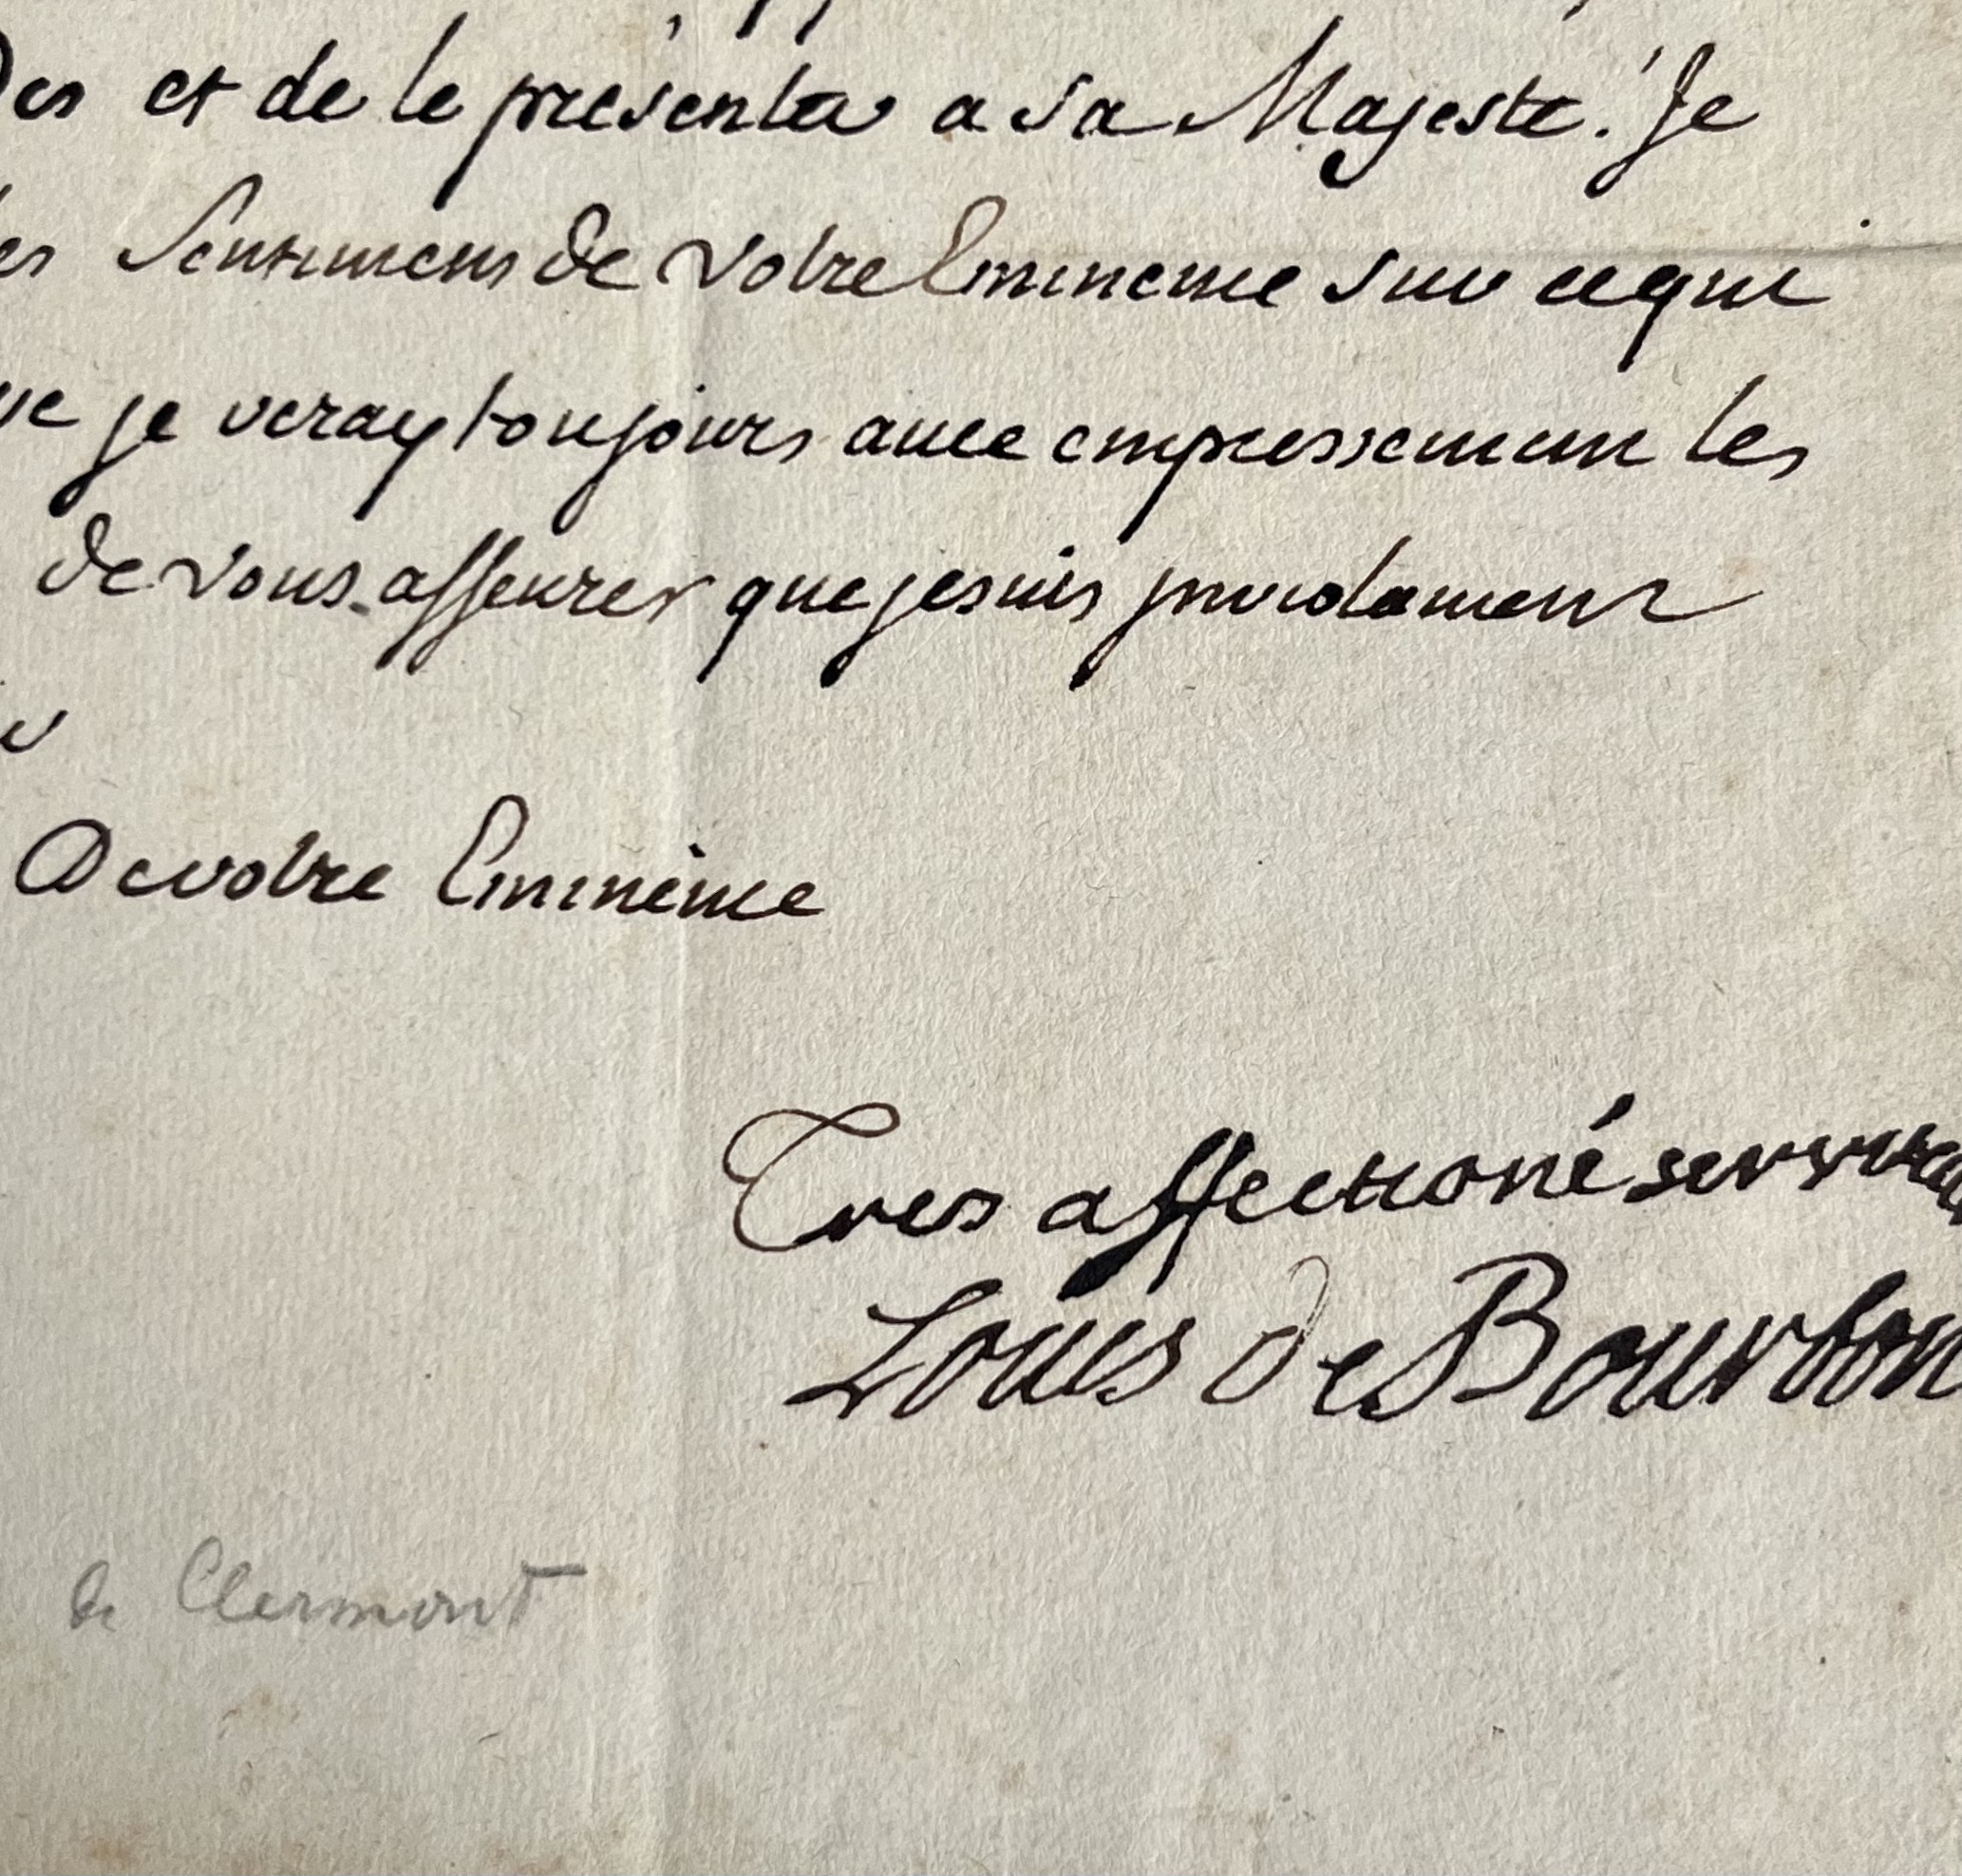 es et de le présenter a sa Majesté. Je
es Sentimens de Votre Eminence sur ce qui
je veray toujours avec empressement les
de vous asseurer que je suis
De votre Eminence
Tres affectioné
Louis de Bourbon
de Clermont